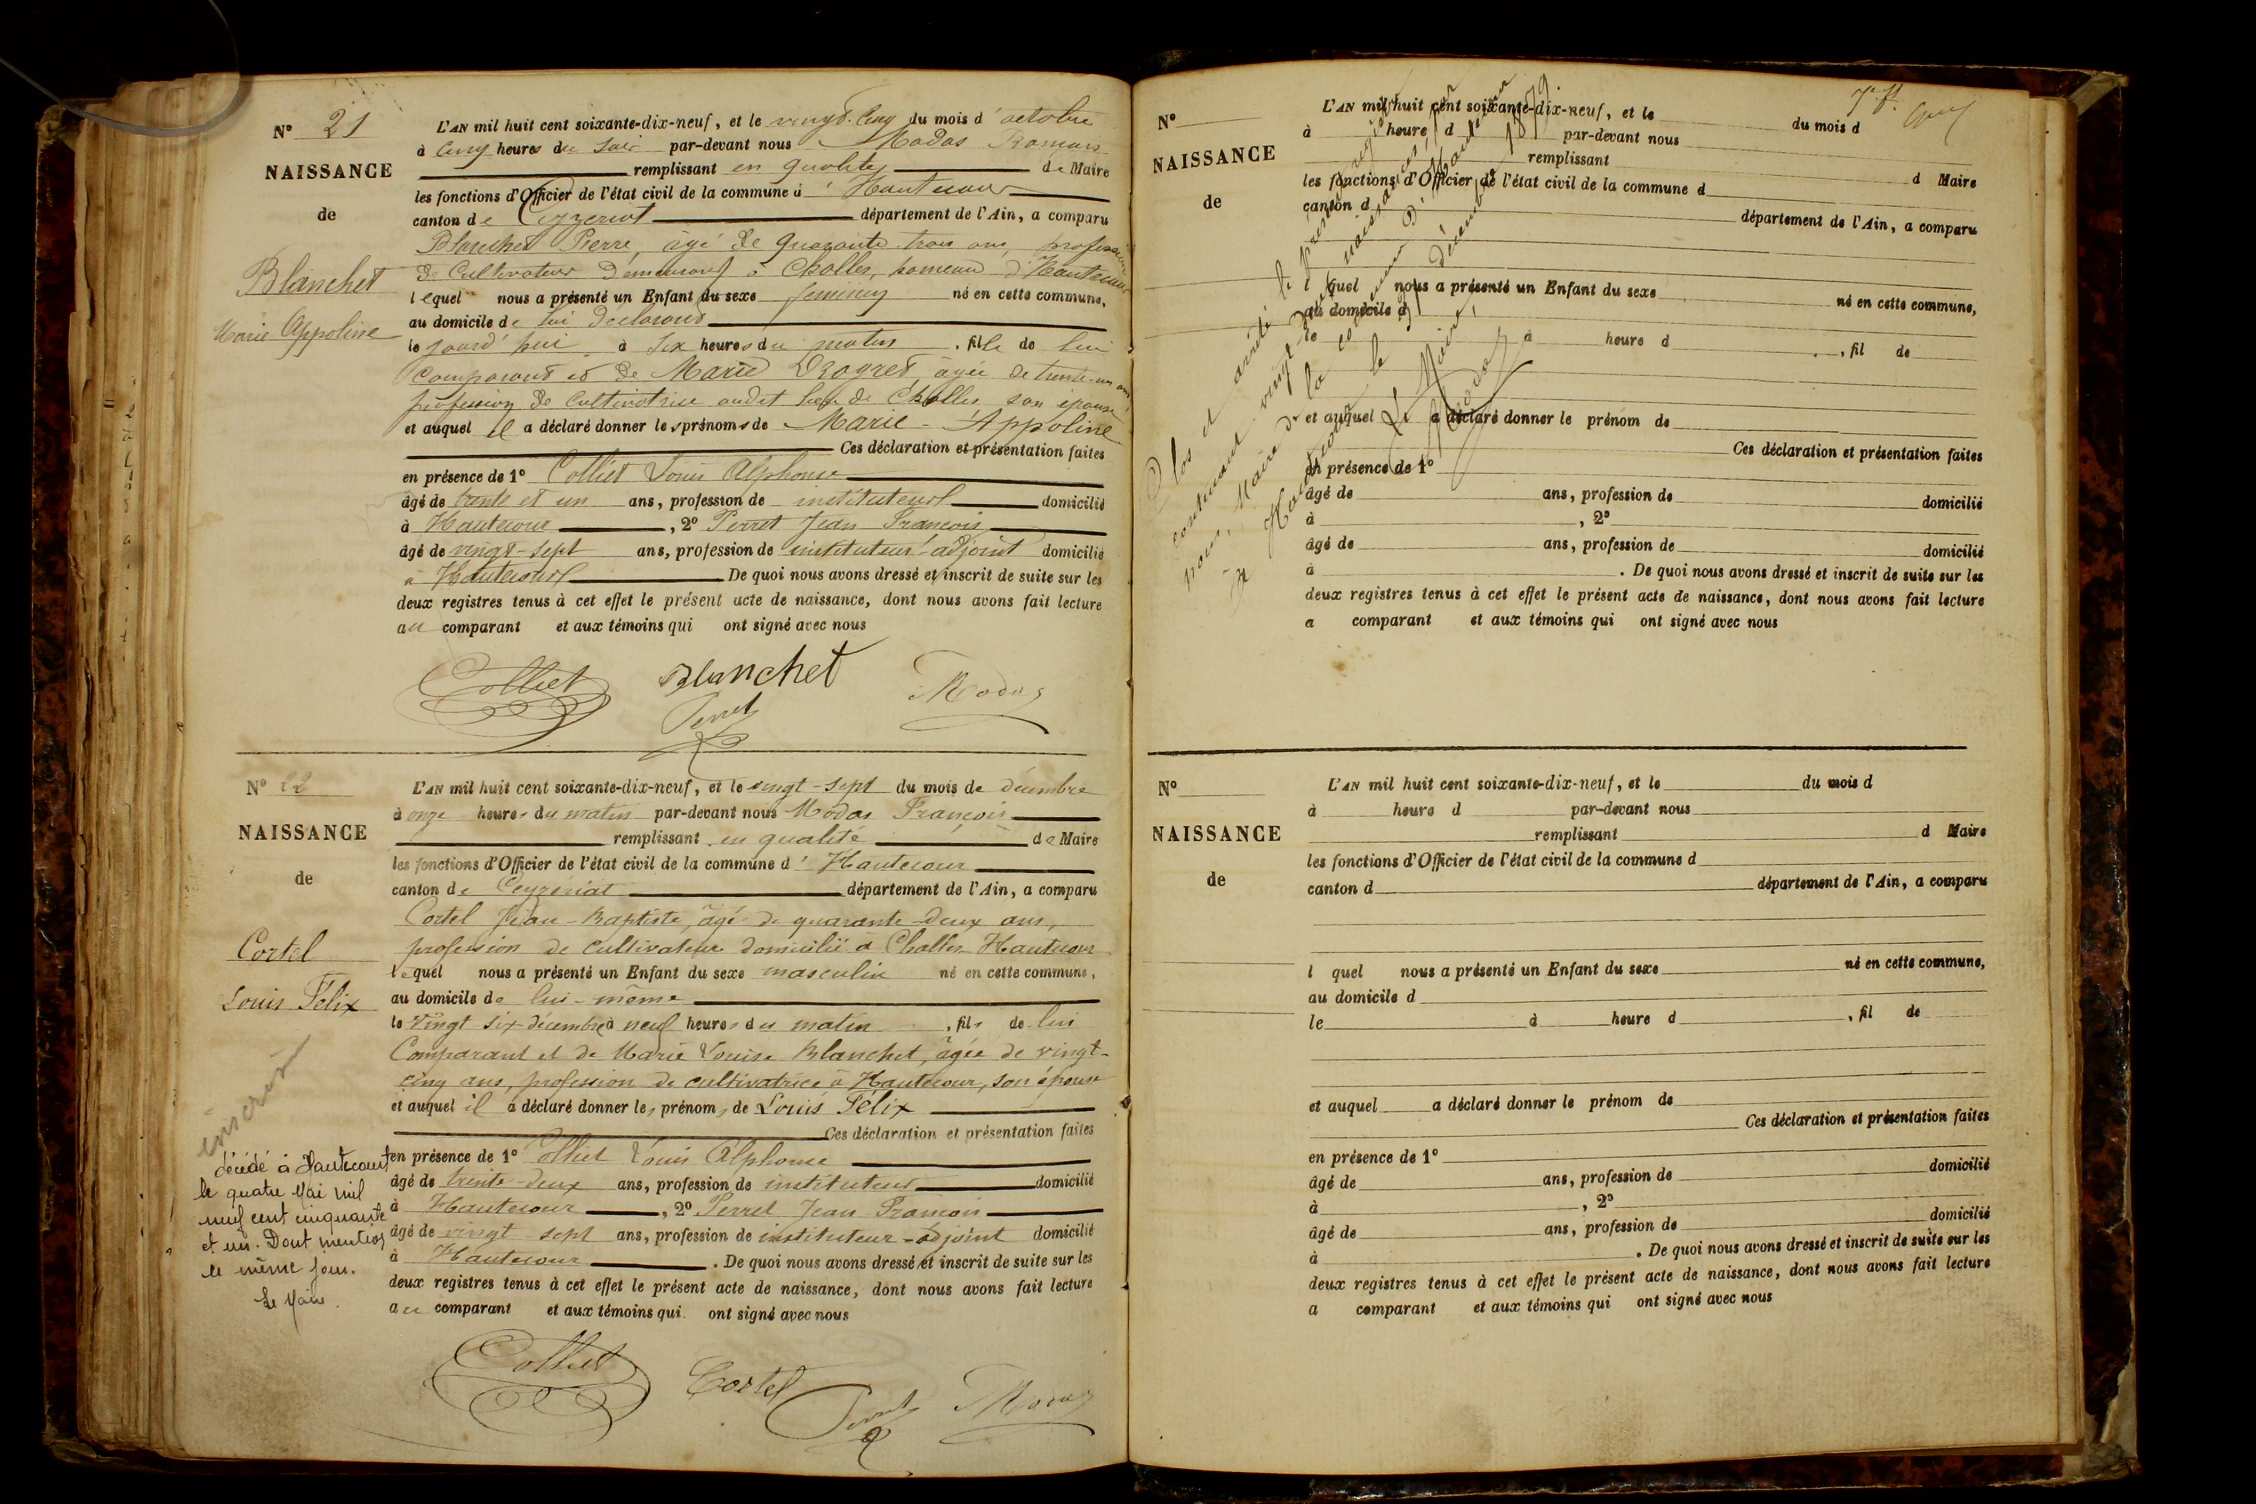 N° 21
NAISSANCE
de
Blanchet
Marie Appoline
L'AN mil huit cent soixante-dix-neuf, et le vingt-cinq du mois d'octobre
à cinq heures du soir par-devant nous Modas
remplissant en qualité de Maire
les fonctions d'Officier de l'état civil de la commune d'Hautecour
canton de Ceyzeriat département de l'Ain, a comparu
Blanchet Pierre, âgé de quarante trois ans, profession
de Cultivateur demeurant à Challes, hameau d'Hautecour
lequel nous a présenté un Enfant du sexe feminin né en cette commune,
au domicile de lui declarant
le jourd'hui à six heures du matin, fille de lui
comparant et de Marie Drogret, âgée de trente-un ans,
profession de Cultivatrice audit lieu de Challes, son épouse
et auquel il a déclaré donner les prénoms de Marie-Appoline
Ces déclaration et présentation faites
en présence de 1° Colliet Louis Alphonse
âgé de trente et un ans, profession de instituteur domicilié
à Hautecour, 2° Perret Jean François
âgé de vingt-sept ans, profession de instituteur-adjoint domicilié
à Hautecour De quoi nous avons dressé et inscrit de suite sur les
deux registres tenus à cet effet le présent acte de naissance, dont nous avons fait lecture
au comparant et aux témoins qui ont signé avec nous
Colliet Blanchet Modas
Perret
N° 22
NAISSANCE
de
Cortel
Louis Félix
inscrit
décédé à Hautecourt
le quatre Mai mil
neuf cent cinquante
et un. Dont mention
le même jour.
Le Maire.
L'AN mil huit cent soixante-dix-neuf, et le vingt-sept du mois de décembre
à onze heures du matin par-devant nous Modas François
remplissant en qualité de Maire
les fonctions d'Officier de l'état civil de la commune d'Hautecour
canton de Ceyzeriat département de l'Ain, a comparu
Cortel Jean-Baptiste, âgé de quarante-deux ans,
profession de cultivateur domicilié à Challes Hautecour
lequel nous a présenté un Enfant du sexe masculin né en cette commune,
au domicile de lui-même
le vingt six décembre à neuf heures du matin, fils de lui
Comparant et de Marie Louise Blanchet, âgée de vingt-
cinq ans, profession de cultivatrice à Hautecour, son épouse
et auquel il a déclaré donner les prénoms de Louis Félix
Ces déclaration et présentation faites
en présence de 1° Colliet Louis Alphonse
âgé de trente-deux ans, profession de instituteur domicilié
à Hautecour, 2° Perret Jean François
âgé de vingt sept ans, profession de instituteur-adjoint domicilié
à Hautecour. De quoi nous avons dressé et inscrit de suite sur les
deux registres tenus à cet effet le présent acte de naissance, dont nous avons fait lecture
au comparant et aux témoins qui ont signé avec nous
Colliet Cortel Perret Modas
N°
NAISSANCE
de
L'AN mil huit cent soixante-dix-neuf, et le du mois d
à heure d par-devant nous
remplissant d Maire
les fonctions d'Officier de l'état civil de la commune d
canton d département de l'Ain, a comparu
l quel nous a présenté un Enfant du sexe né en cette commune,
au domicile d
le à heure d , fil de
et auquel a déclaré donner le prénom de
Ces déclaration et présentation faites
en présence de 1°
âgé de ans, profession de domicilié
à , 2°
âgé de ans, profession de domicilié
à . De quoi nous avons dressé et inscrit de suite sur les
deux registres tenus à cet effet le présent acte de naissance, dont nous avons fait lecture
a comparant et aux témoins qui ont signé avec nous
Clos et arrêté le présent registre
contenant vingt-deux naissances, par
nous, Maire de la commune d'Hautecour
À Hautecour le 31 décembre 1879.
Le Maire,
Modas
N°
NAISSANCE
de
L'AN mil huit cent soixante-dix-neuf, et le du mois d
à heure d par-devant nous
remplissant d Maire
les fonctions d'Officier de l'état civil de la commune d
canton d département de l'Ain, a comparu
l quel nous a présenté un Enfant du sexe né en cette commune,
au domicile d
le à heure d , fil de
et auquel a déclaré donner le prénom de
Ces déclaration et présentation faites
en présence de 1°
âgé de ans, profession de domicilié
à , 2°
âgé de ans, profession de domicilié
à . De quoi nous avons dressé et inscrit de suite sur les
deux registres tenus à cet effet le présent acte de naissance, dont nous avons fait lecture
a comparant et aux témoins qui ont signé avec nous